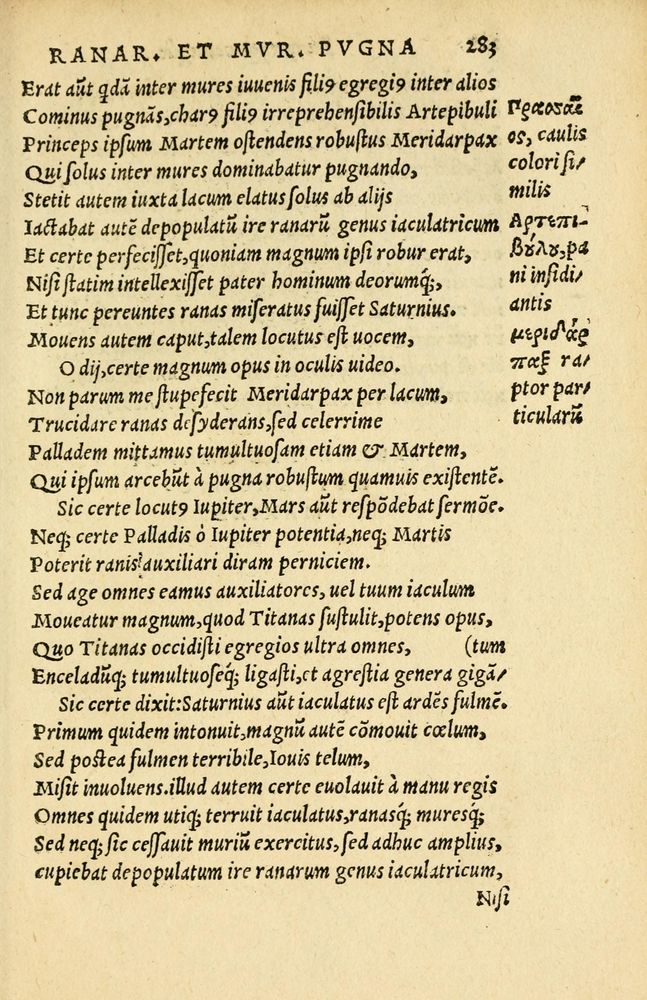 RANAR. ET MVR. PVGNA 283
Erat aūt qdā inter mures iuuenis filiꝰ egregiꝰ inter alios
Cominus pugnās, charꝰ filiꝰ irreprehensibilis Artepibuli
Princeps ipsum Martem ostendens robustus Meridarpax
Qui solus inter mures dominabatur pugnando,
Stetit autem iuxta lacum elatus solus ab alijs
Iactabat autē depopulatū ire ranarū genus iaculatricum
Et certe perfecisset, quoniam magnum ipsi robur erat,
Nisi statim intellexisset pater hominum deorumq́;,
Et tunc pereuntes ranas miseratus fuisset Saturnius.
Mouens autem caput, talem locutus est uocem,
O dij, certe magnum opus in oculis uideo.
Non parum me stupefecit Meridarpax per lacum,
Trucidare ranas desyderans, sed celerrime
Palladem mittamus tumultuosam etiam & Martem,
Qui ipsum arcebūt à pugna robustum quamuis existentē.
Sic certe locutꝰ Iupiter, Mars aūt respōdebat sermōe.
Neq; certe Palladis ò Iupiter potentia, neq; Martis
Poterit ranis auxiliari diram perniciem.
Sed age omnes eamus auxiliatores, uel tuum iaculum
Moueatur magnum, quod Titanas sustulit, potens opus,
Quo Titanas occidisti egregios ultra omnes, (tum
Enceladūq; tumultuoseq́; ligasti, et agrestia genera gigā/
Sic certe dixit: Saturnius aūt iaculatus est ardēs fulmē.
Primum quidem intonuit, magnū autē cōmouit cœlum,
Sed postea fulmen terribile, Iouis telum,
Misit inuoluens. illud autem certe euolauit à manu regis
Omnes quidem utiq; terruit iaculatus, ranasq́; muresq́;
Sed neq; sic cessauit muriū exercitus, sed adhuc amplius,
cupiebat depopulatum ire ranarum genus iaculatricum,
Nisi
os, caulis
colori si/
milis
Αρτεπι-
βούλου, pa
ni insidi/
antis
μεριδάρ
παξ ra/
ptor par/
ticularū